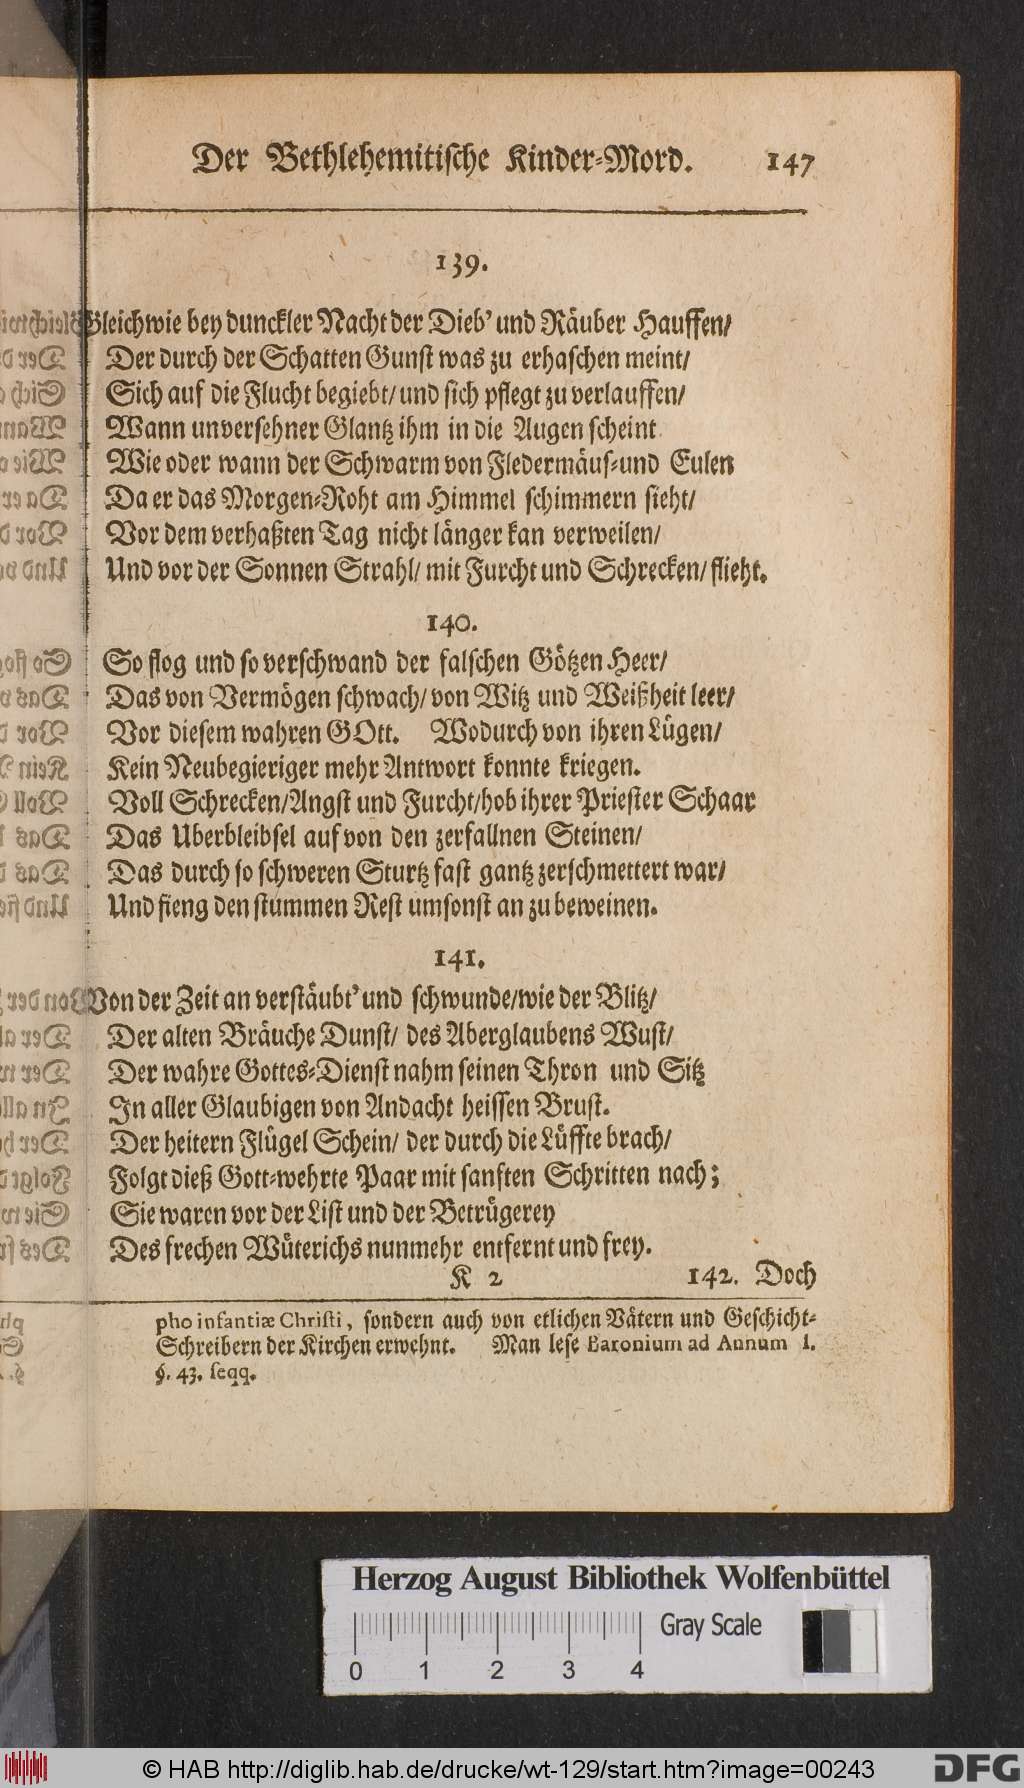 Der Bethlehemitische Kinder-Mord. 147
139.
Gleichwie bey dunckler Nacht der Dieb' und Räuber Hauffen/
Der durch der Schatten Gunst was zu erhaschen meint/
Sich auf die Flucht begiebt/ und sich pflegt zu verlauffen/
Wann unversehner Glantz ihm in die Augen scheint
Wie oder wann der Schwarm von Fledermäus-und Eulen
Da er das Morgen-Roht am Himmel schimmern sieht/
Vor dem verhaßten Tag nicht länger kan verweilen/
Und vor der Sonnen Strahl/ mit Furcht und Schrecken/ flieht.
140.
So flog und so verschwand der falschen Götzen Heer/
Das von Vermögen schwach/ von Witz und Weißheit leer/
Vor diesem wahren GOtt. Wodurch von ihren Lügen/
Kein Neubegieriger mehr Antwort konnte kriegen.
Voll Schrecken/Angst und Furcht/hob ihrer Priester Schaar
Das Uberbleibsel auf von den zerfallnen Steinen/
Das durch so schweren Sturtz fast gantz zerschmettert war/
Und fieng den stummen Rest umsonst an zu beweinen.
141.
Von der Zeit an verstäubt' und schwunde/wie der Blitz/
Der alten Bräuche Dunst/ des Aberglaubens Wust/
Der wahre Gottes-Dienst nahm seinen Thron und Sitz
In aller Glaubigen von Andacht heissen Brust.
Der heitern Flügel Schein/ der durch die Lüffte brach/
Folgt dieß Gott-wehrte Paar mit sanften Schritten nach;
Sie waren vor der List und der Betrügerey
Des frechen Wüterichs nunmehr entfernt und frey.
K 2 142. Doch
pho infantiæ Christi, sondern auch von etlichen Vätern und Geschicht-
Schreibern der Kirchen erwehnt. Man lese Baronium ad Annum 1.
§. 43. seqq.
Herzog August Bibliothek Wolfenbüttel
Gray Scale
0 1 2 3 4
© HAB http://diglib.hab.de/drucke/wt-129/start.htm?image=00243
DFG